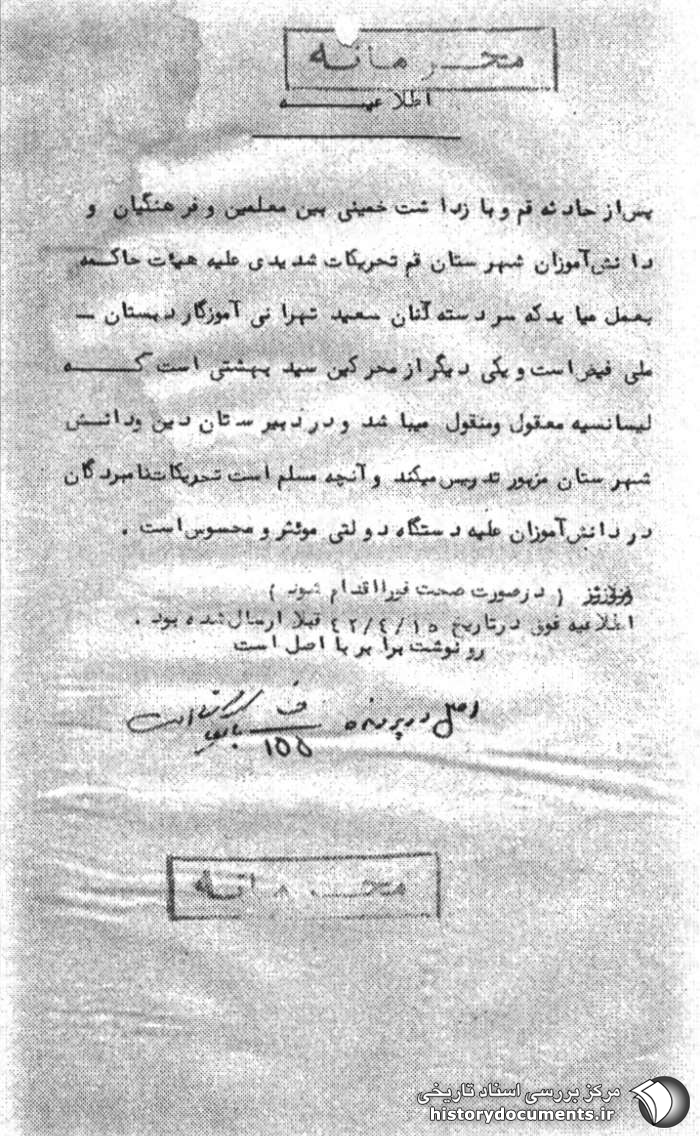 محرمانه
اطلاعیـــــــه
پس از حادثه قم و بازداشت خمینی بین معلمین و فرهنگیان و
دانش‌آموزان شهرستان قم تحریکات شدیدی علیه هیئات حاکمـه
بعمل میاید که سردسته آنان سعید تهرانی آموزگار دبستان -
ملی فیض است و یکی دیگر از محرکین سید بهشتی است کـــــه
لیسانسیه معقول ومنقول میباشد و در دبیرستان دین ودانـش
شهرستان مزبور تدریس میکند و آنچه مسلم است تحریکات نامبردگان
در دانش‌آموزان علیه دستگاه دولتی موئثر و محسوس است .
( در صورت صحت فورا اقدام شود )
اطلاعیه فوق در تاریخ ٤٢/٤/١٥ قبلا ارسال شده بود .
رونوشت برابر با اصل است
اصل در پرونده ف
١٥٥
محرمانه
مرکز بررسی اسناد تاریخی
historydocuments.ir